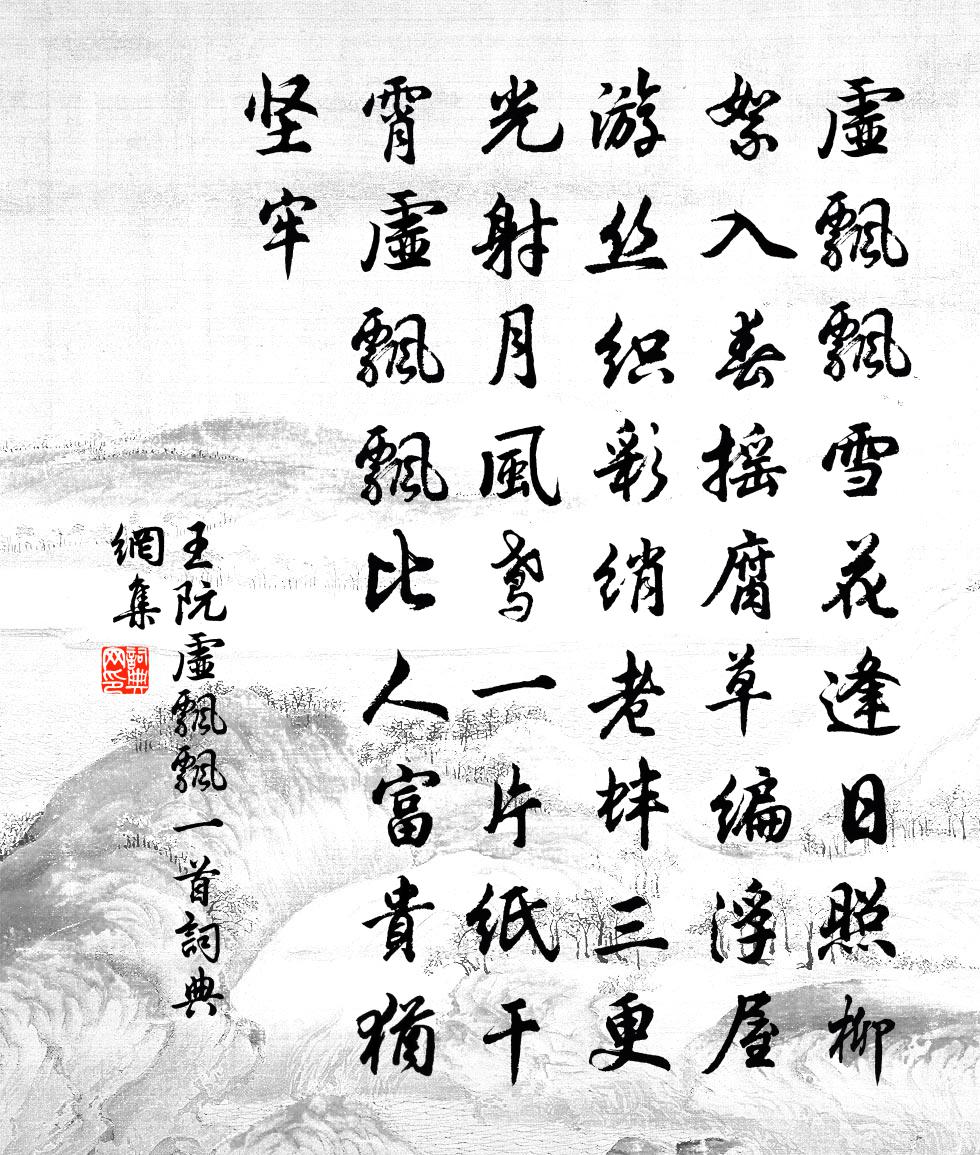 虛飄飄雪花逢日照柳
絮入春摇腐草編浮屋
游丝织彩绡老蚌三更
光射月風鸢一片纸干
霄虛飄飄比人富貴猶
坚牢
王阮虛飄飄一首詞典
網集
詞典
网印